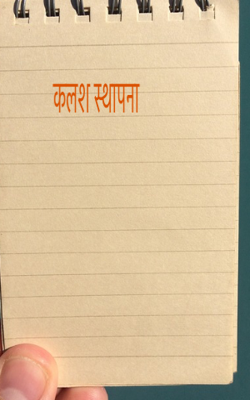 कलश स्थापना